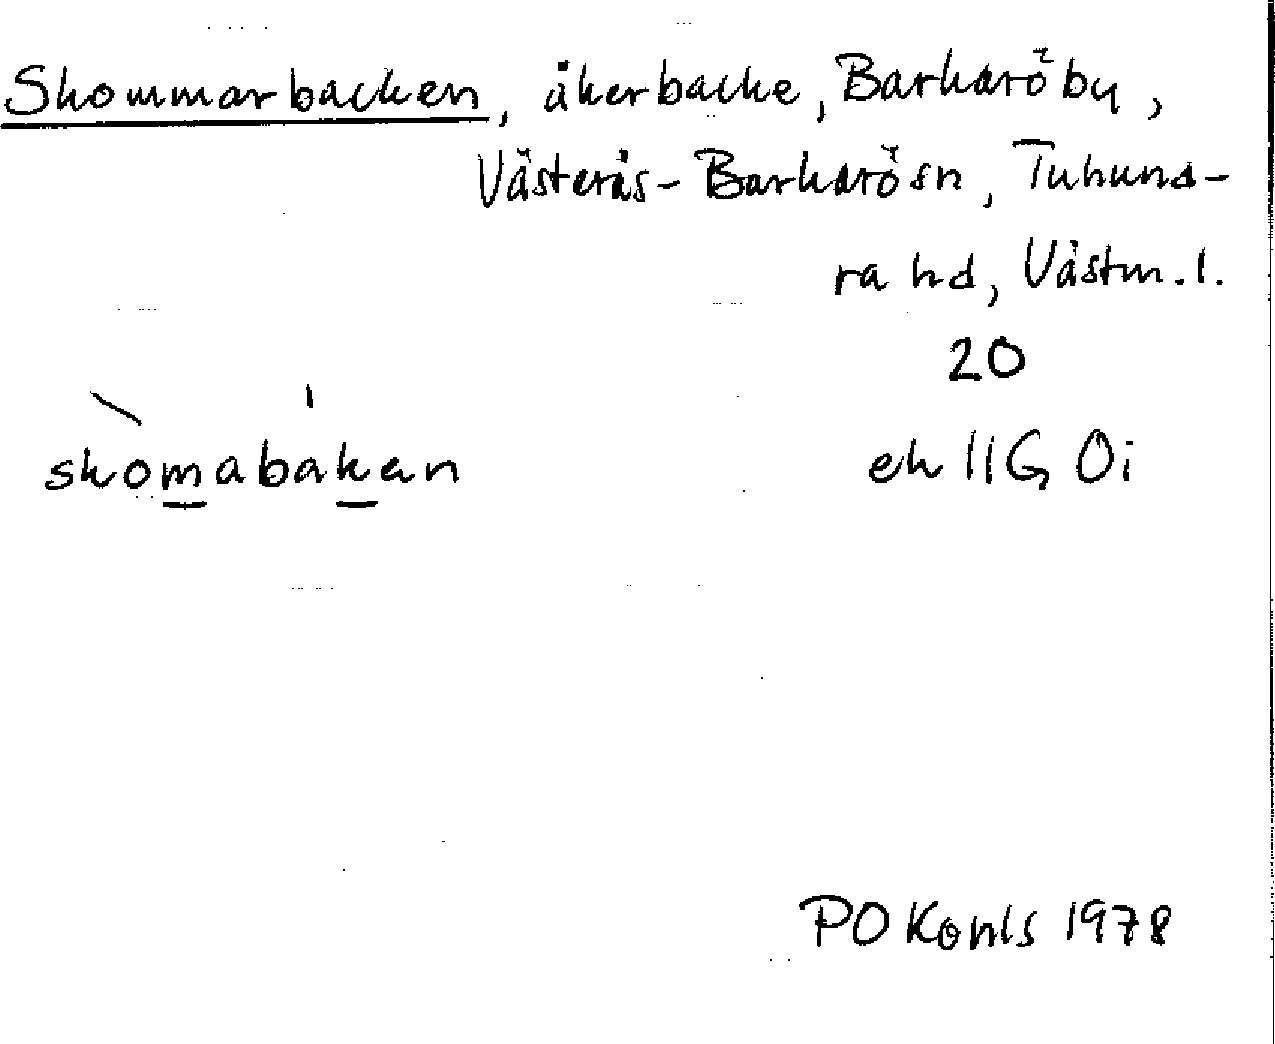 Skommarbacken, åkerbacke, Barkaröby,
Västerås-Barkarö sn, Tuhund-
ra hd, Västm. l.
20
skomabakan
ek 11G 0i
PO Konls 1978